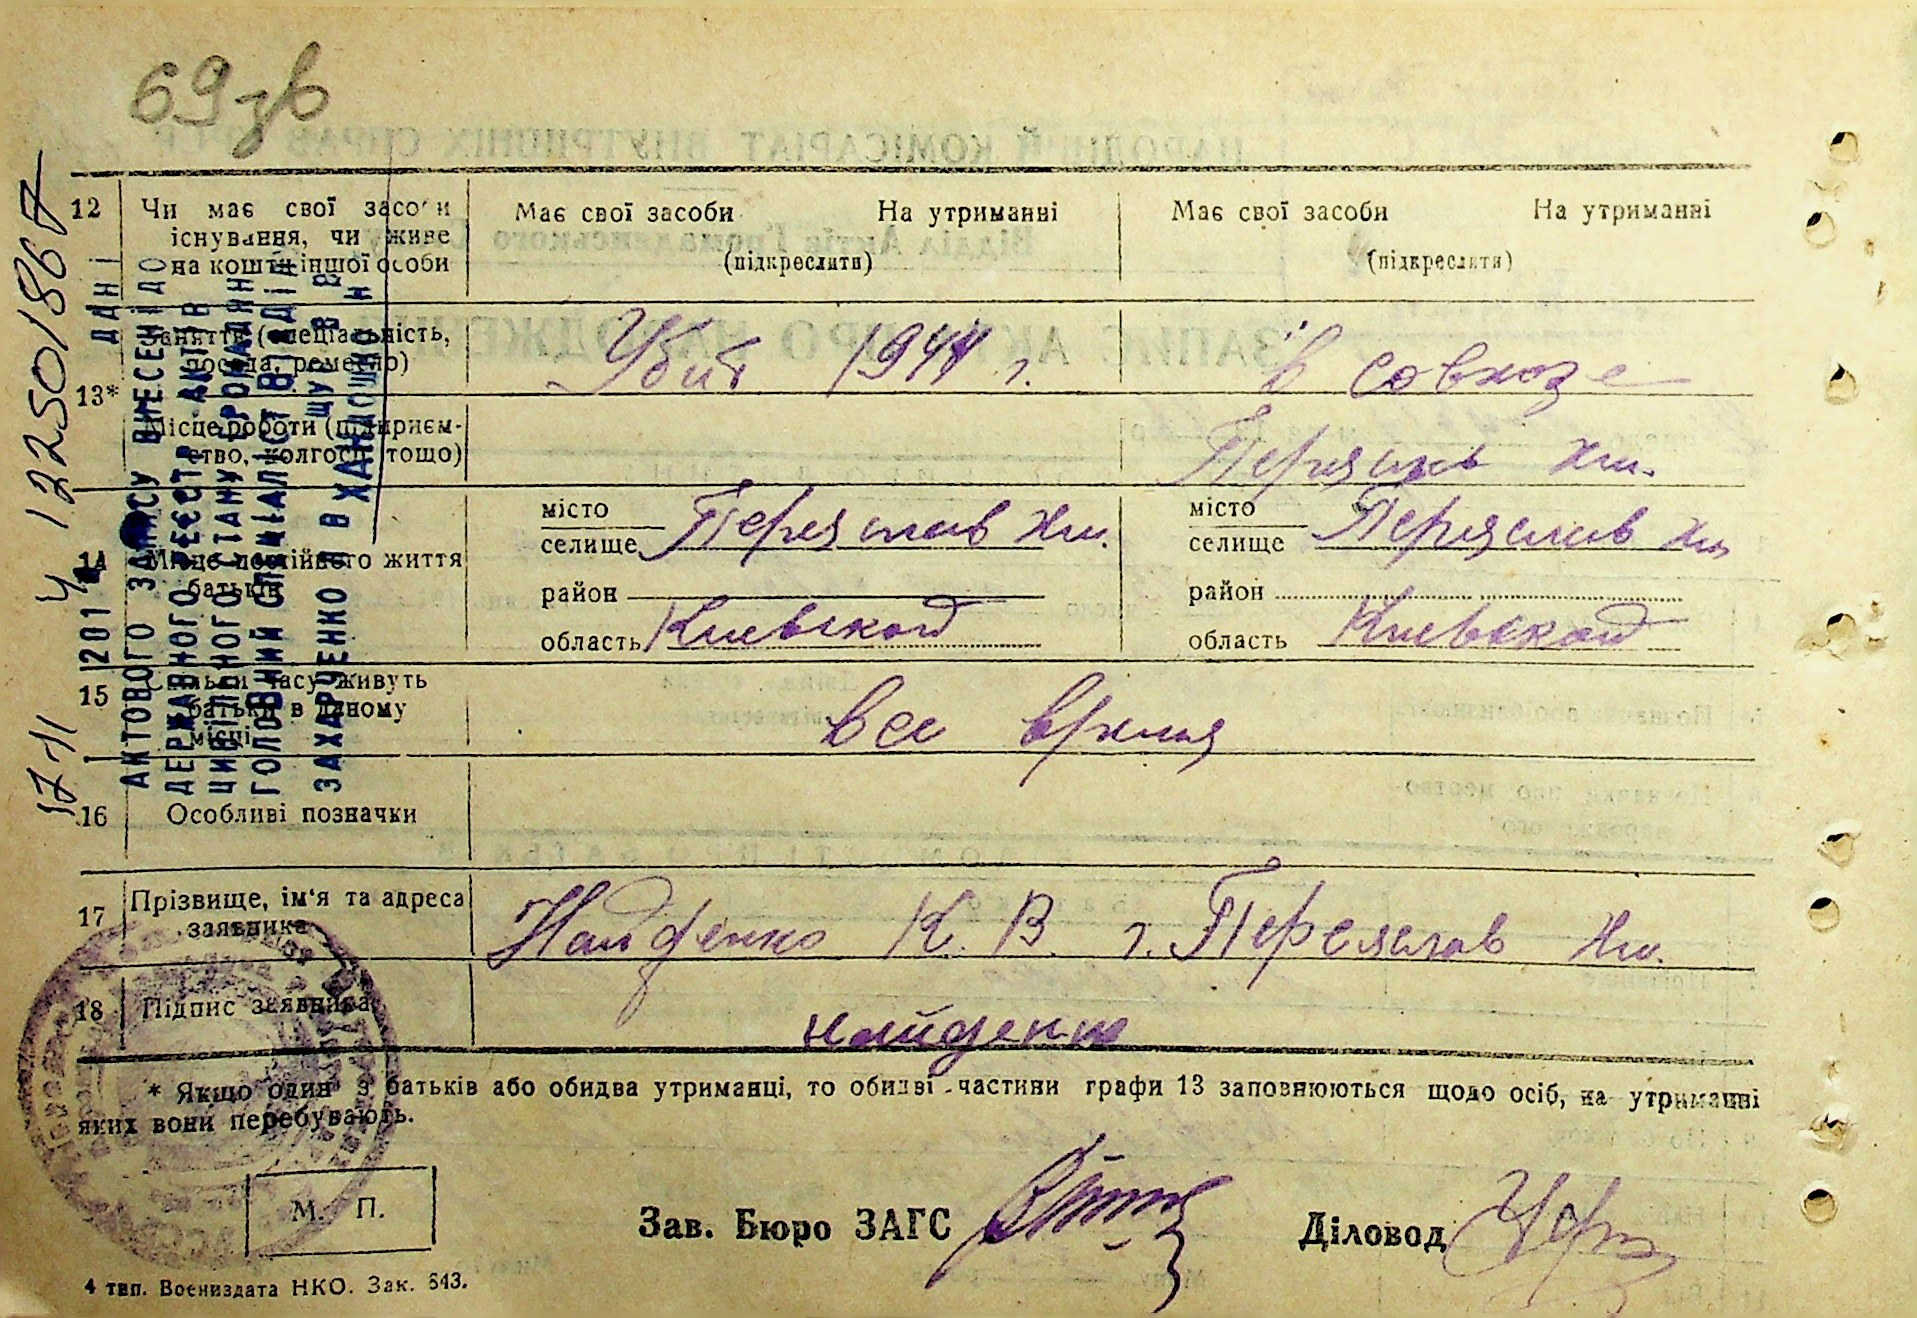 69 зв
12
Чи має свої засоби
існування, чи живе
на кошти іншої особи
Має свої засоби На утриманні
(підкреслити)
Має свої засоби На утриманні
(підкреслити)
13*
Заняття (спеціальність,
посада, ремесло)
Убит 1944 г.
в совхозе
Місце роботи (підприєм-
ство, колгосп, тощо)
Переяслав Хм.
14
Місце постійного життя
батьків
місто
селище Переяслав Хм.
район
область Киевской
місто
селище Переяслав Хм
район
область Киевской
15
Скільки часу живуть
батьки в даному
місці
все время
16
Особливі позначки
17
Прізвище, ім'я та адреса
заявника
Найденко К. В. г. Переяслав Хм.
18
Підпис заявника
Найденко
* Якщо один з батьків або обидва утриманці, то обидві частини графи 13 заповнюються щодо осіб, на утриманні
яких вони перебувають.
М. П.
Зав. Бюро ЗАГС
Діловод
4 тип. Воениздата НКО. Зак. 643.
12250186
201 4
ДАНІ
АКТОВОГО ЗАПИСУ ВНЕСЕНІ ДО
ДЕРЖАВНОГО РЕЄСТР АКТІВ
ЦИВІЛЬНОГО СТАНУ ГРОМАДЯН
ГОЛОВНИЙ СПЕЦІАЛІСТ ВІДДІЛУ
ЗАХАРЧЕНКО Я В ХАНДОШКО Н